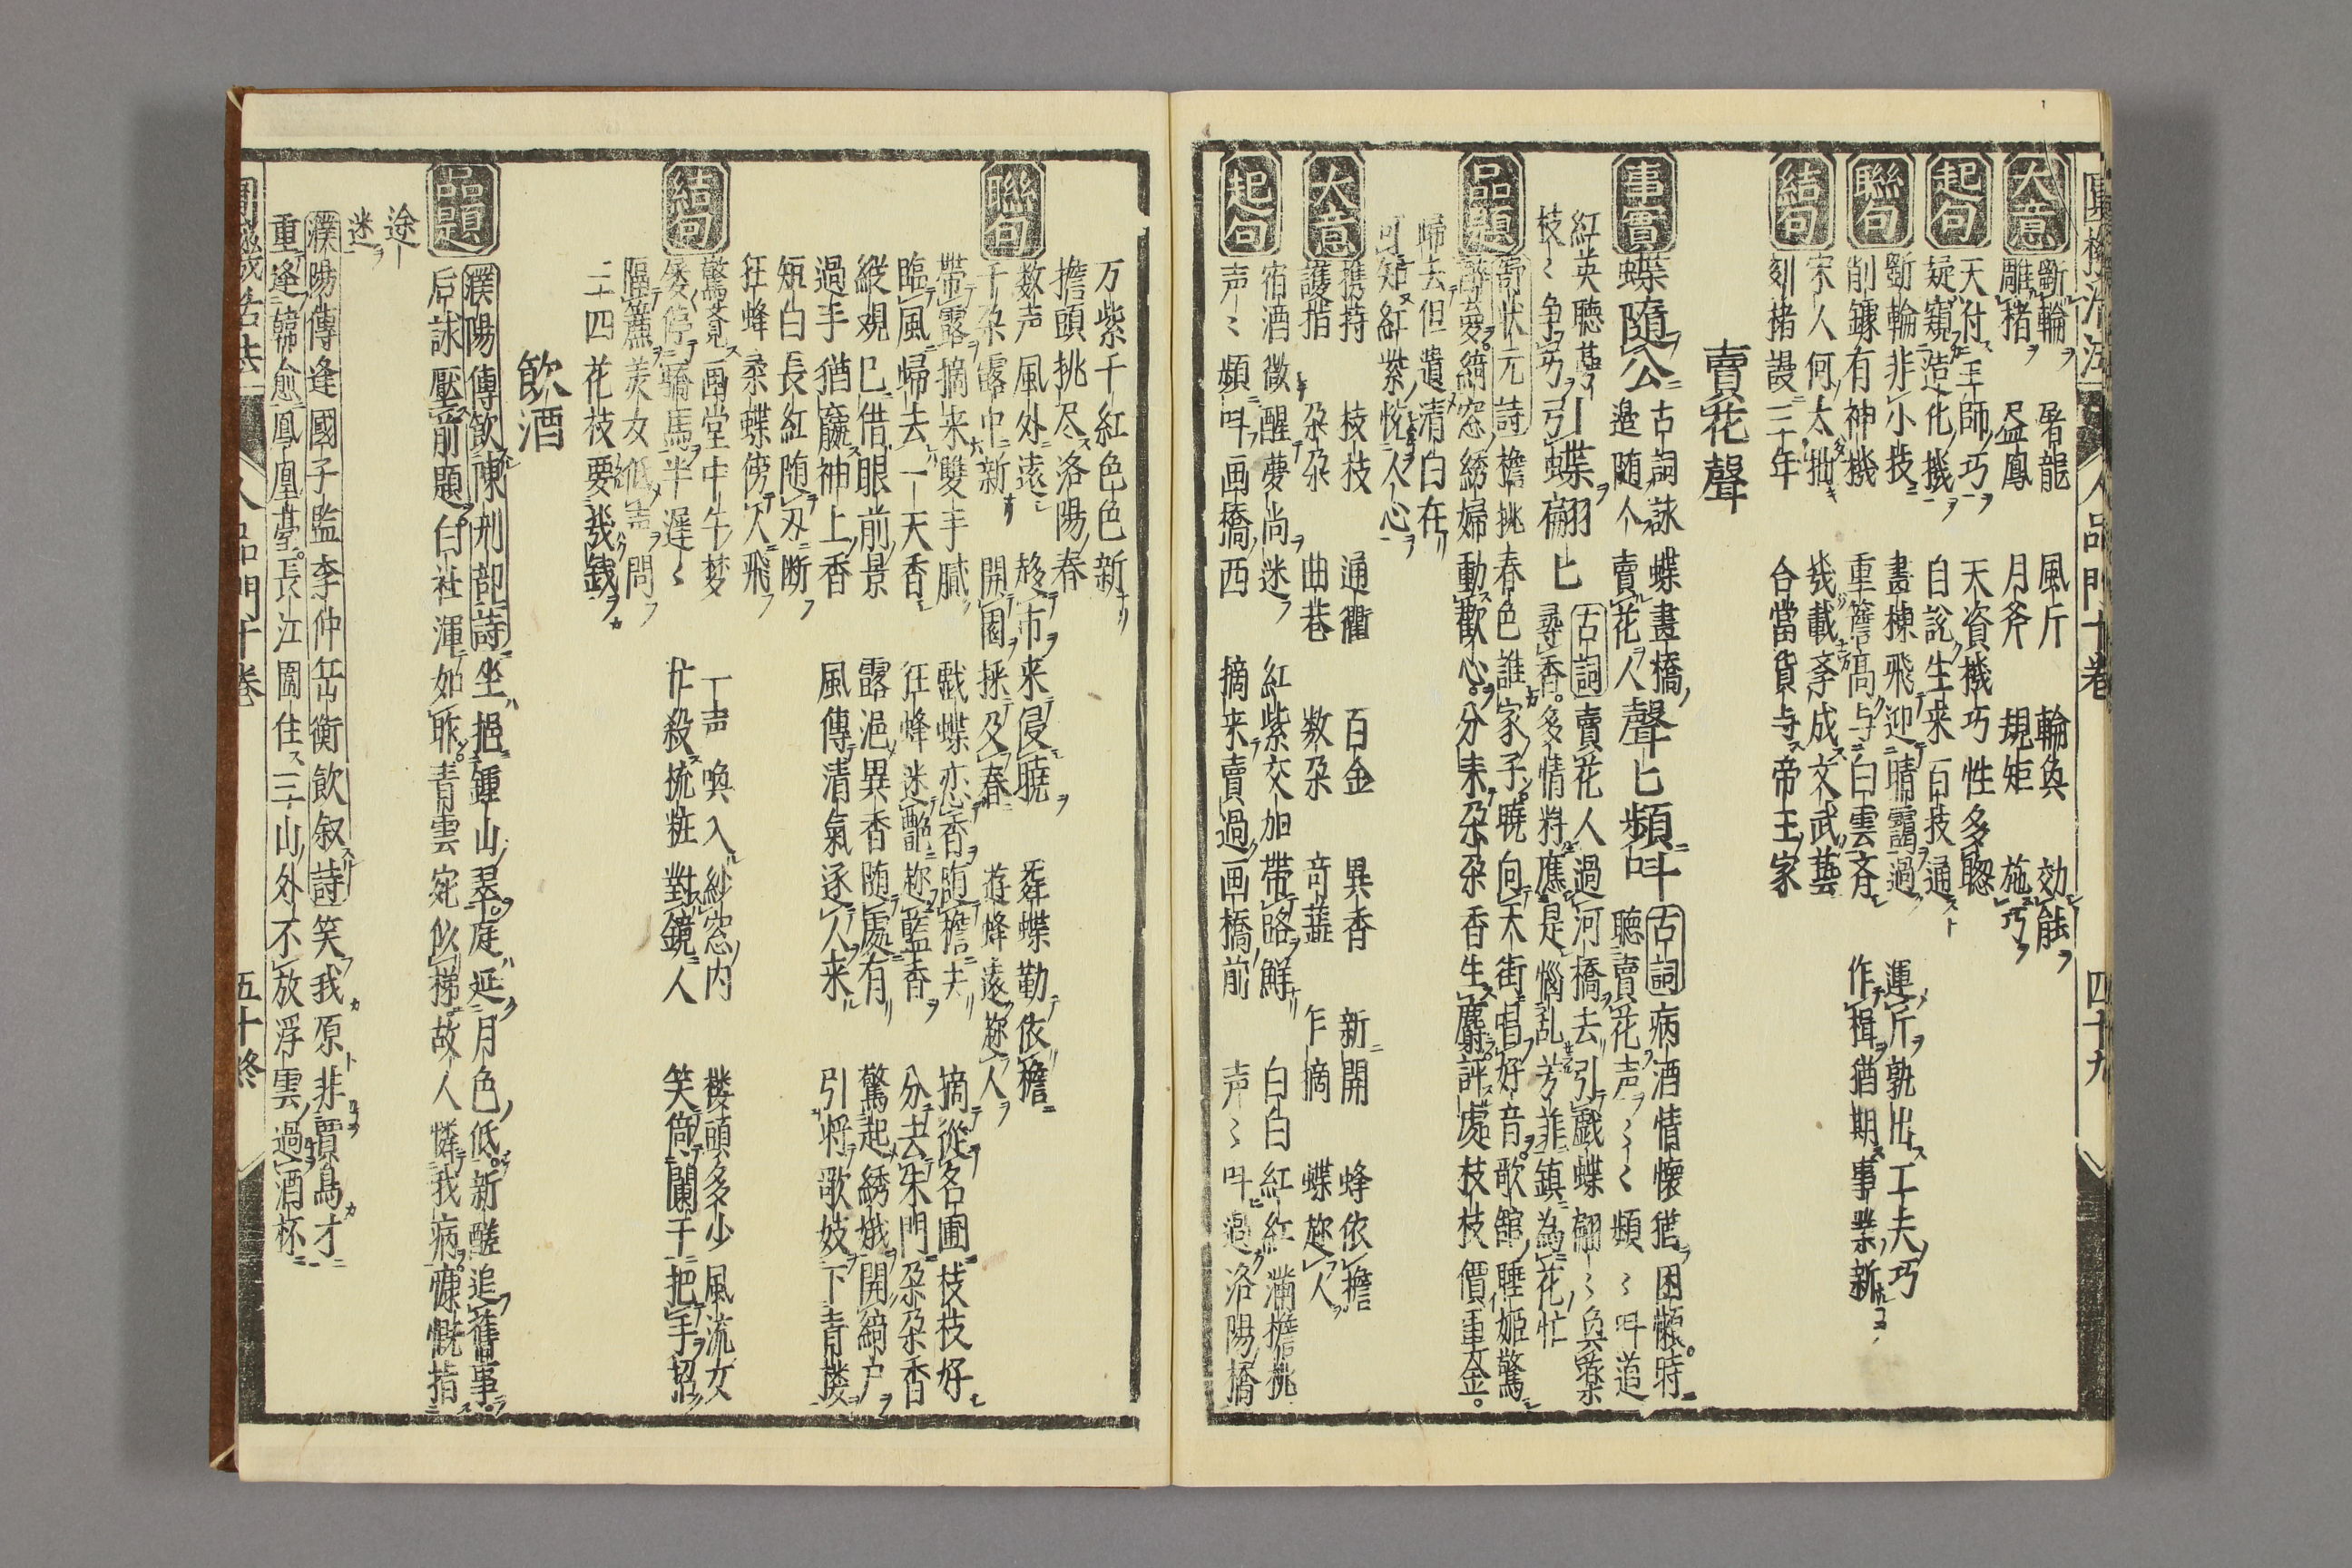 大意
斲輪 屠龍 風斤 輪奐 効能
雕楮 盆鳳 月斧 規矩 施巧
起句
天付工師巧 天資機巧性多聡
疑窺造化機 自説生来百技通
聯句
斲輪非小技 畫棟飛迎晴靄過 運斤孰出工夫巧
削鐻有神機 重簷高与白雲斉 作楫猶期事業新
結句
宋人何太拙 幾載李成文武藝
刻楮謾三年 合當貨与帝王家
賣花聲
事實
蝶隨人 古詞詠蝶畫橋邉随人賣花人
聲匕頻叫 古詞病酒情懐猶困懶時聽賣花声〻〻頻〻叫道
紅英聽夢
枝〻争丐
引蝶翩匕 古詞賣花人過河橋去引戯蝶翩〻奐蘂尋香。多情将應是惱乱芳菲鎮為花忙
品題
寄状元詩 檐挑春色誰家子。暁向天街唱好音。歌舘睡姫驚
酔夢綺窓綉婦動歡心。分来朶朶香生麝評處枝枝價重金。
歸去但遺清白在
可知紅紫恱人心
大意
携持 枝枝 通衢 百金 異香 新開 蜂依檐
護指 朶朶 曲巷 数朶 奇蘤 乍摘 蝶趂人
起句
宿酒微醒夢尚迷 紅紫交加帯露鮮 白白紅紅満檐挑
声〻頻叫画橋西 摘来賣過画橋前 声〻叫過洛陽橋
四十九
万紫千紅色色新
擔頭挑尽洛陽春
聯句
数声風外遠 趍市来侵曉 舞蝶勤依檐
千朶露中新 開園採及春 遊蜂遠趂人
帯露摘来雙手膩 戯蝶恋香随檐去 摘從名圃枝枝好
臨風歸去一天香 狂蜂迷艶趂籃香 分去朱門朶朶香
縦觀已借眼前景 露浥異香随處有 驚起綉娥開綺户
過手猶龐神上香 風傳清氣逐人来 引将歌妓下青楼
短白長紅随刃断
狂蜂柔蝶傍人飛
結句
驚覚画堂中午梦 一声喚入紗窓内 楼頭多少風流女
倐停驕馬半遲〻 忙殺梳粧對鏡人 笑倚闌干把手招
隔簾美女低声問
二十四花枝要幾銭
飲酒
品題
濮陽傳飲陳刑部詩 坐挹鍾山翠庭延月色低。新醝追舊事。
后詠壓前題 白社渾如昨。青雲宛似梯故人憐我病。慷慨指
途
迷
濮陽傳逢國子監李仲岳衡飲叙詩 笑我原非賈島才
重逢韓愈鳳凰臺。長江圍住三山外不放浮雲過酒杯
五十終